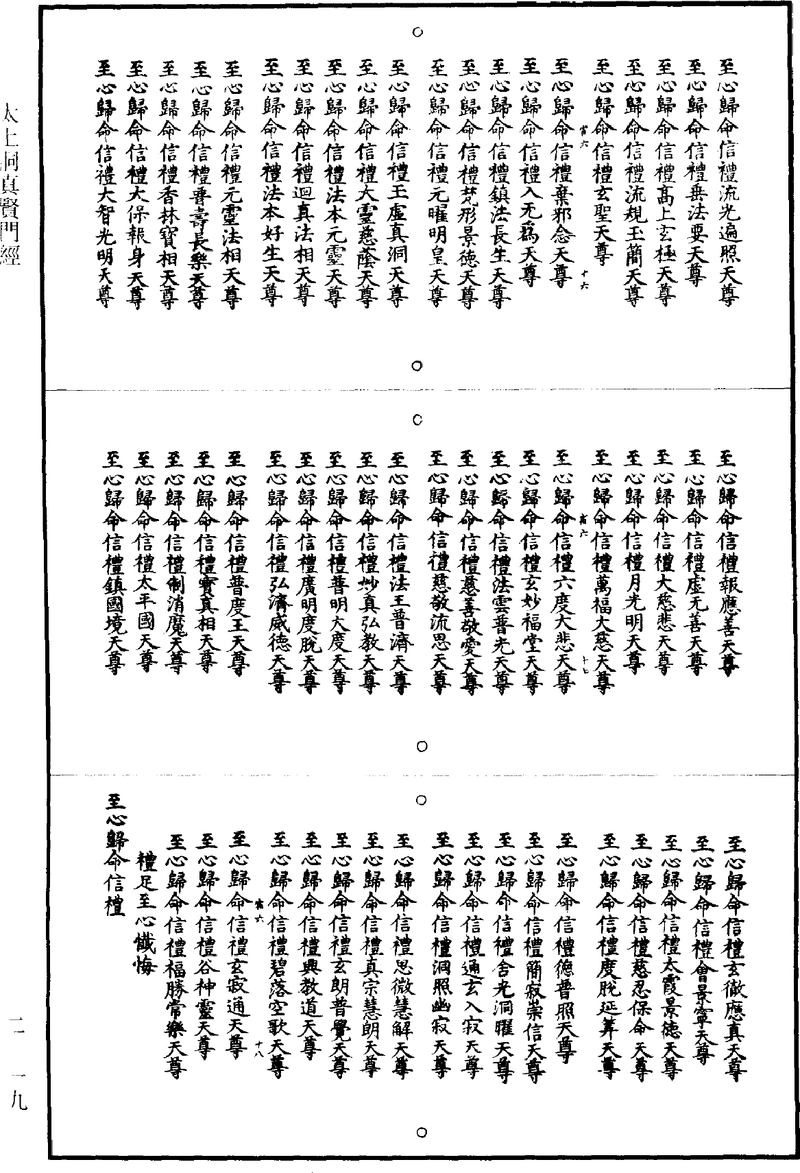 至心歸命信禮流光遍照天尊
至心歸命信禮垂法要天尊
至心歸命信禮髙上玄極天尊
至心歸命信禮流規玉簡天尊
至心歸命信禮玄聖天尊
當六
十六
至心歸命信禮棄邪念天尊
至心歸命信禮入无爲天尊
至心歸命信禮鎮法長生天尊
至心歸命信禮梵形景徳天尊
至心歸命信禮元曜明皇天尊
至心歸命信禮王虚真洞天尊
至心歸命信禮大靈慈蔭天尊
至心歸命信禮法本元靈天尊
至心歸命信禮迴真法相天尊
至心歸命信禮法本好生天尊
至心歸命信禮元靈法相天尊
至心歸命信禮普壽長樂天尊
至心歸命信禮香林寶相天尊
至心歸命信禮大保報身天尊
至心歸命信禮大智光明天尊
至心歸命信禮報應善天尊
至心歸命信禮虚无善天尊
至心歸命信禮大慈悲天尊
至心歸命信禮月光明天尊
至心歸命信禮萬福大慈天尊
當六
十七
至心歸命信禮六度大悲天尊
至心歸命信禮玄妙福堂天尊
至心歸命信禮法雲普光天尊
至心歸命信禮慈善敬愛天尊
至心歸命信禮慈敬流思天尊
至心歸命信禮法王普濟天尊
至心歸命信禮妙真弘教天尊
至心歸命信禮普明大度天尊
至心歸命信禮廣明度脫天尊
至心歸命信禮弘濟威德天尊
至心歸命信禮普度王天尊
至心歸命信禮寶真相天尊
至心歸命信禮制消魔天尊
至心歸命信禮太平國天尊
至心歸命信禮鎮國境天尊
至心歸命信禮玄徹應真天尊
至心歸命信禮會景寧天尊
至心歸命信禮太霞景徳天尊
至心歸命信禮慈忍保命天尊
至心歸命信禮度脫延筭天尊
至心歸命信禮德普照天尊
至心歸命信禮簡寂崇信天尊
至心歸命信禮舍光洞曜天尊
至心歸命信禮通玄入寂天尊
至心歸命信禮洞照幽寂天尊
至心歸命信禮思微慧解天尊
至心歸命信禮真宗慧朗天尊
至心歸命信禮玄朗普覺天尊
至心歸命信禮興教道天尊
至心歸命信禮碧落空歌天尊
當六
十八
至心歸命信禮玄寂通天尊
至心歸命信禮谷神靈天尊
至心歸命信禮福勝常樂天尊
禮足至心懺悔
至心歸命信禮
太上洞真賢門經
二一一九